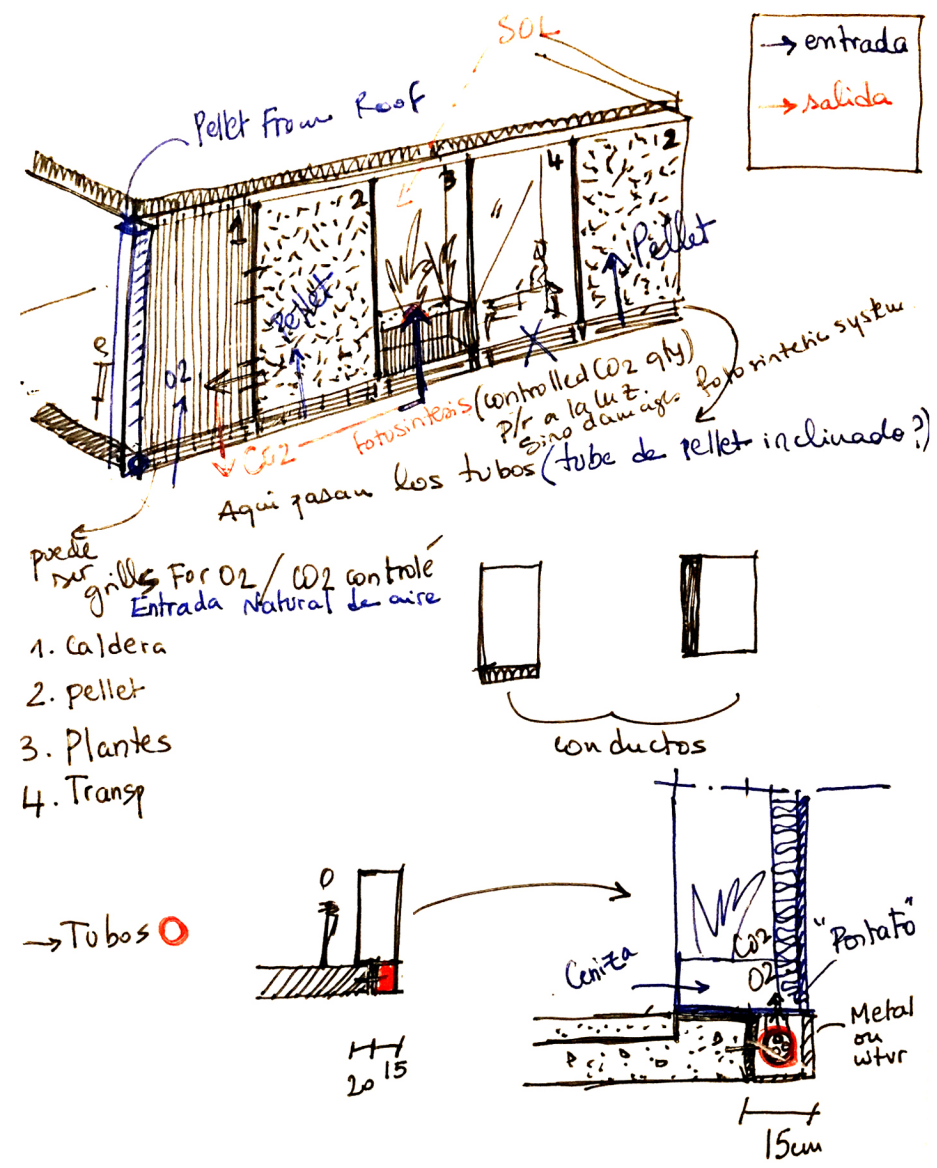 SOL
→ entrada
→ salida
Pellet From Roof
1
2
3
4
2
Pellet
Pellet
e
O2
CO2
Fotosintesis (controlled CO2 qty)
p/r a la luz.
sino damage fotosintetic system
Aqui pasan los tubos (tube de pellet inclinado?)
puede
ser grills For O2/CO2 controlé
Entrada Natural de aire
1. Caldera
2. pellet
3. Plantes
4. Transp
conductos
→ Tubos
20 15
Ceniza
CO2
O2
Metal
ou
15cm